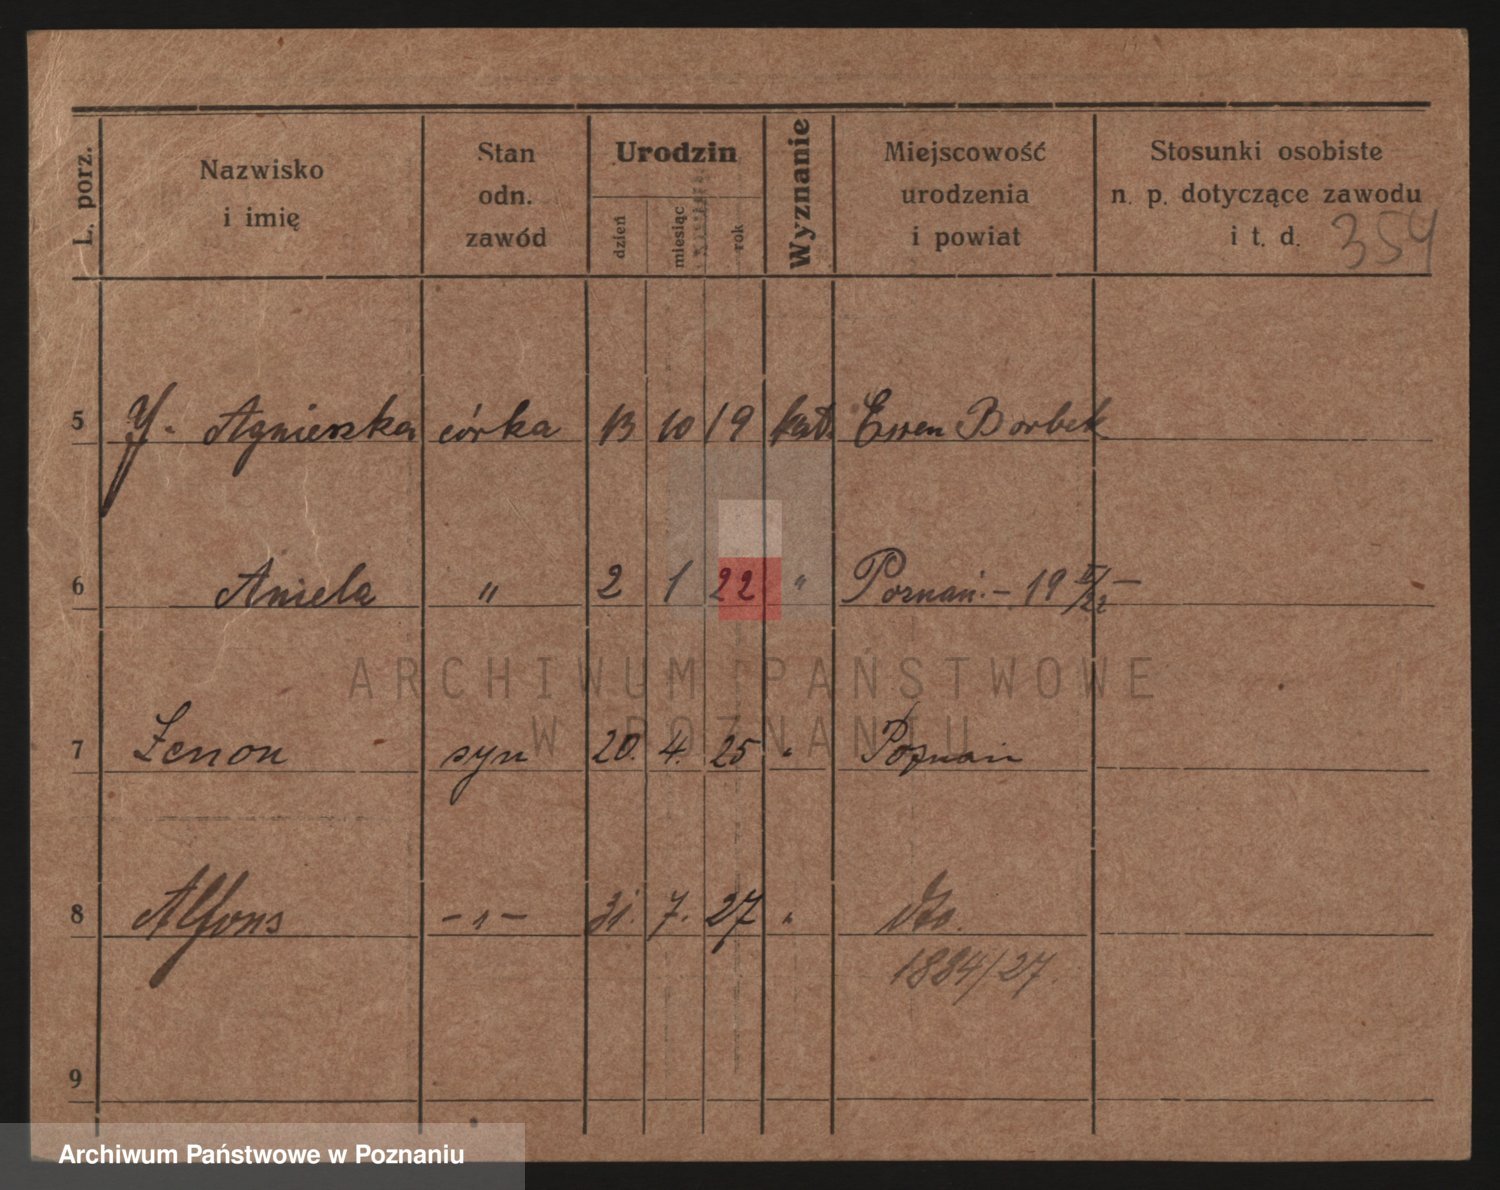 L. porz.
Nazwisko
i imię
Stan
odn.
zawód
Urodzin
dzień
miesiąc
rok
Wyznanie
Miejscowość
urodzenia
i powiat
Stosunki osobiste
n. p. dotyczące zawodu
i t. d.
354
5 Agnieszka córka 13 10 19 kat. Essen Borbek
6 Aniela " 2 1 22 " Poznań. – 19
7 Zenon syn 20. 4. 25 " Poznań
8 Alfons – " – 31. 7. 27 " dto.
1884/27.
9
ARCHIWUM PAŃSTWOWE
W POZNANIU
Archiwum Państwowe w Poznaniu